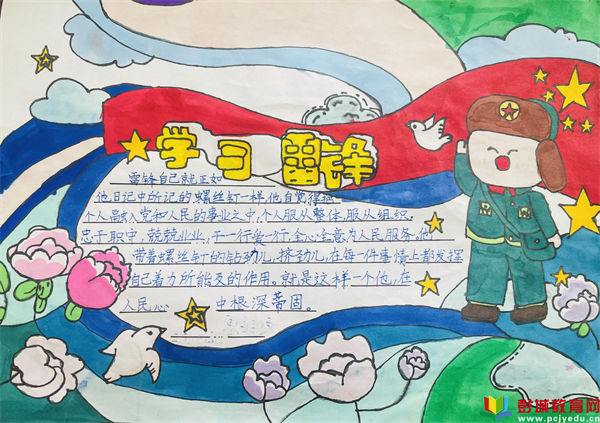 学习雷锋
雷锋自己就正如
他日记中所记的螺丝钉一样,他自觉得把
个人融入党和人民的事业之中,个人服从整体,服从组织,
忠于职守,兢兢业业,干一行爱一行,全心全意为人民服务。他
带着螺丝钉的钻劲儿,挤劲儿,在每一件事情上都发挥
自己着力所能及的作用。就是这样一个他,在
人民心中根深蒂固。
彭城教育网
www.pcjyedu.cn